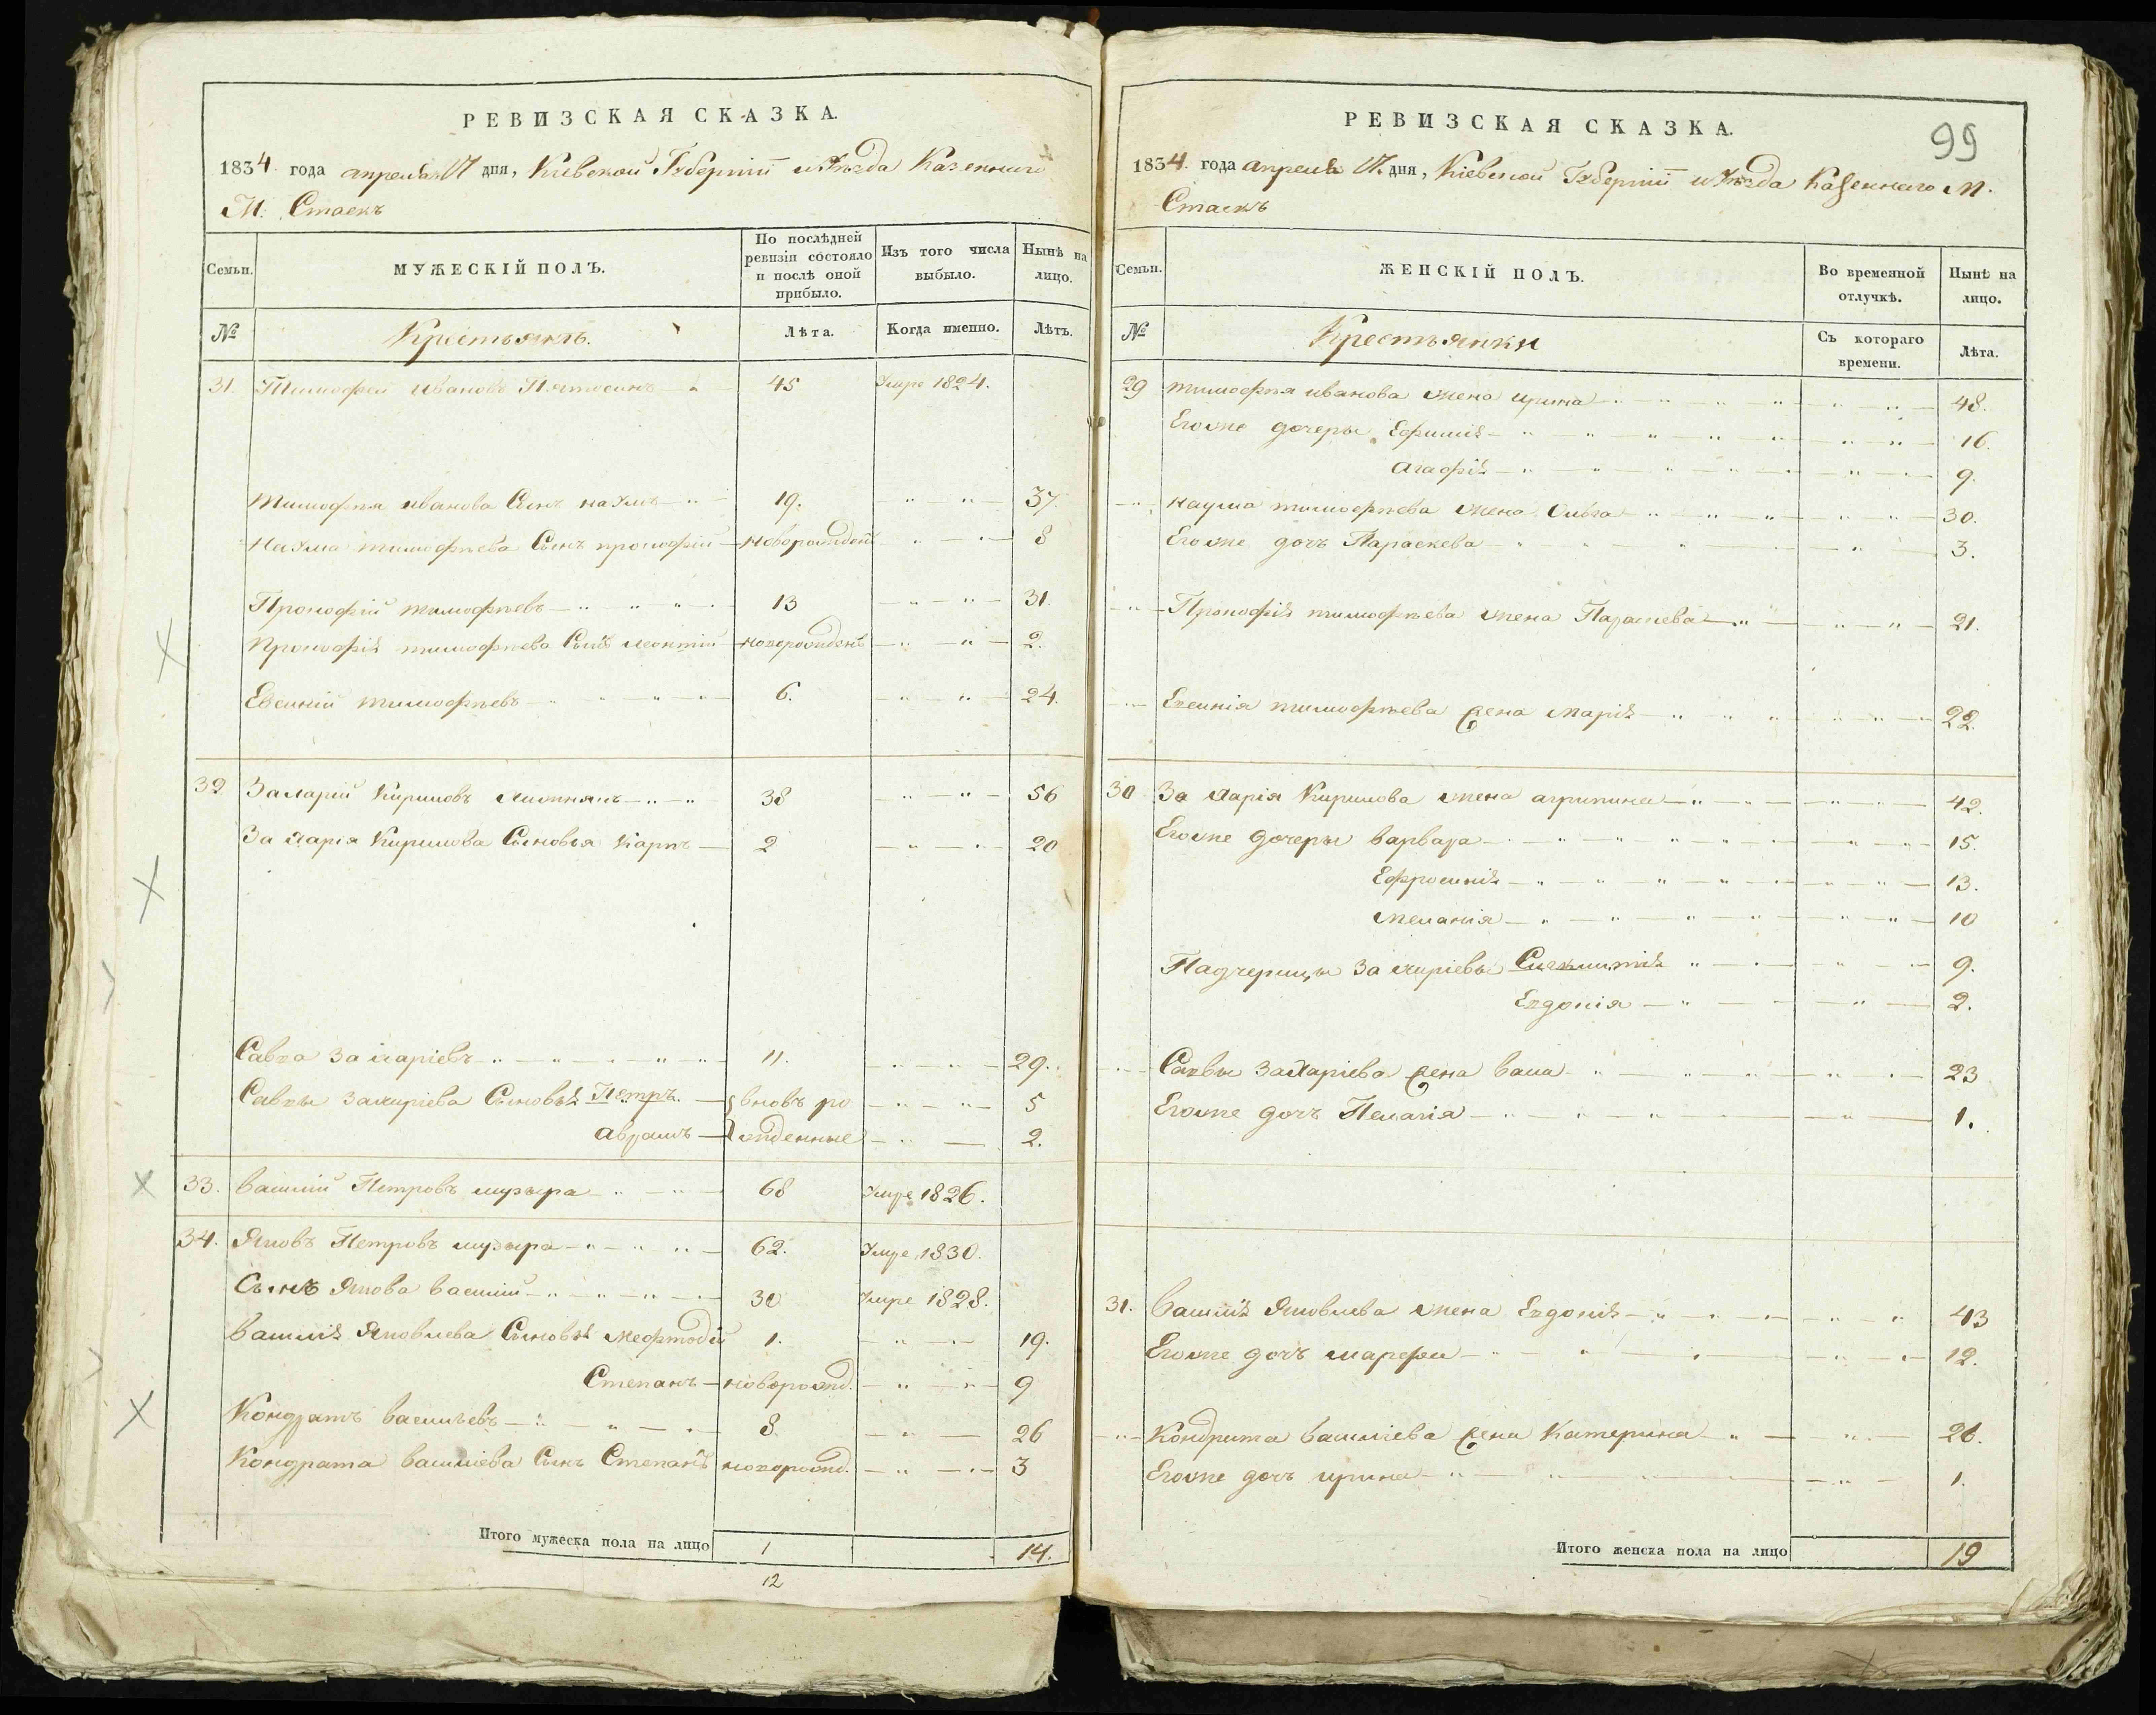 РЕВИЗСКАЯ СКАЗКА.
1834 года апреля 17 дня, Кіевской Губерніи и Уѣзда Казеннаго
М. Стаекъ
Семьи.
МУЖЕСКІЙ ПОЛЪ.
По послѣдней ревизіи состояло и послѣ оной прибыло.
Изъ того числа выбыло.
Нынѣ на лицо.
№
Крестьянъ.
Лѣта.
Когда именно.
Лѣтъ.
31. Тимофей Ивановъ 45 Умре 1824.
Тимофея иванова Сынъ наумъ 19. 37.
Наума тимофѣева Сынъ прокофій новорожден 8
Прокофій тимофѣевъ 13 31.
Прокофія тимофѣева Сынъ леонтій новорожденъ 2.
Евсикій тимофѣевъ 6. 24.
32 Захарій Кириловъ 38 56
Захарія Кирилова Сыновья Карпъ 2 20
Савва Захаріевъ 11. 29.
Саввы Захаріева Сыновья Петръ вновь ро 5
аврамъ жденные 2.
33. Василій Петровъ музыра 68 Умре 1826.
34. Яковъ Петровъ музыра 62. Умре 1830.
Сынъ Якова Василій 30 Умре 1828.
Василія Яковлева Сыновья мефтодій 1. 19.
Степанъ новорожд. 9
Кондратъ васильевъ 8 26
Кондрата василіева Сынъ Степанъ новорожд. 3
Итого мужеска пола на лицо 1 14.
12
99
РЕВИЗСКАЯ СКАЗКА.
1834. года апреля 17. дня, Кіевской Губерніи и Уѣзда Казеннаго М.
Стаекъ
Семьи.
ЖЕНСКІЙ ПОЛЪ.
Во временной отлучкѣ.
Нынѣ на лицо.
№
Крестьянки
Съ котораго времени.
Лѣта.
29 тимофѣя иванова жена ирина 48.
Егоже дочеры Ефимія 16.
Агафія 9.
наума тимофѣева жена 30.
Егоже дочь Параскева 3.
Прокофія тимофѣева жена Параскева 21.
Евсикія тимофѣева жена марія 22.
30 Захарія Кирилова жена агрипина 42.
Егоже дочеры варвара 15.
Ефросинія 13.
меланія 10
Падчерицы Захаріевы 9.
Евдокія 2.
Саввы Захаріева жена васа 23
Егоже дочь Пелагія 1.
31. Василія Яковлева жена Евдокія 43
Егоже дочь марефа 12.
Кондрата василіева жена Катерина 26.
Егоже дочь ирина 1.
Итого женска пола на лицо 19